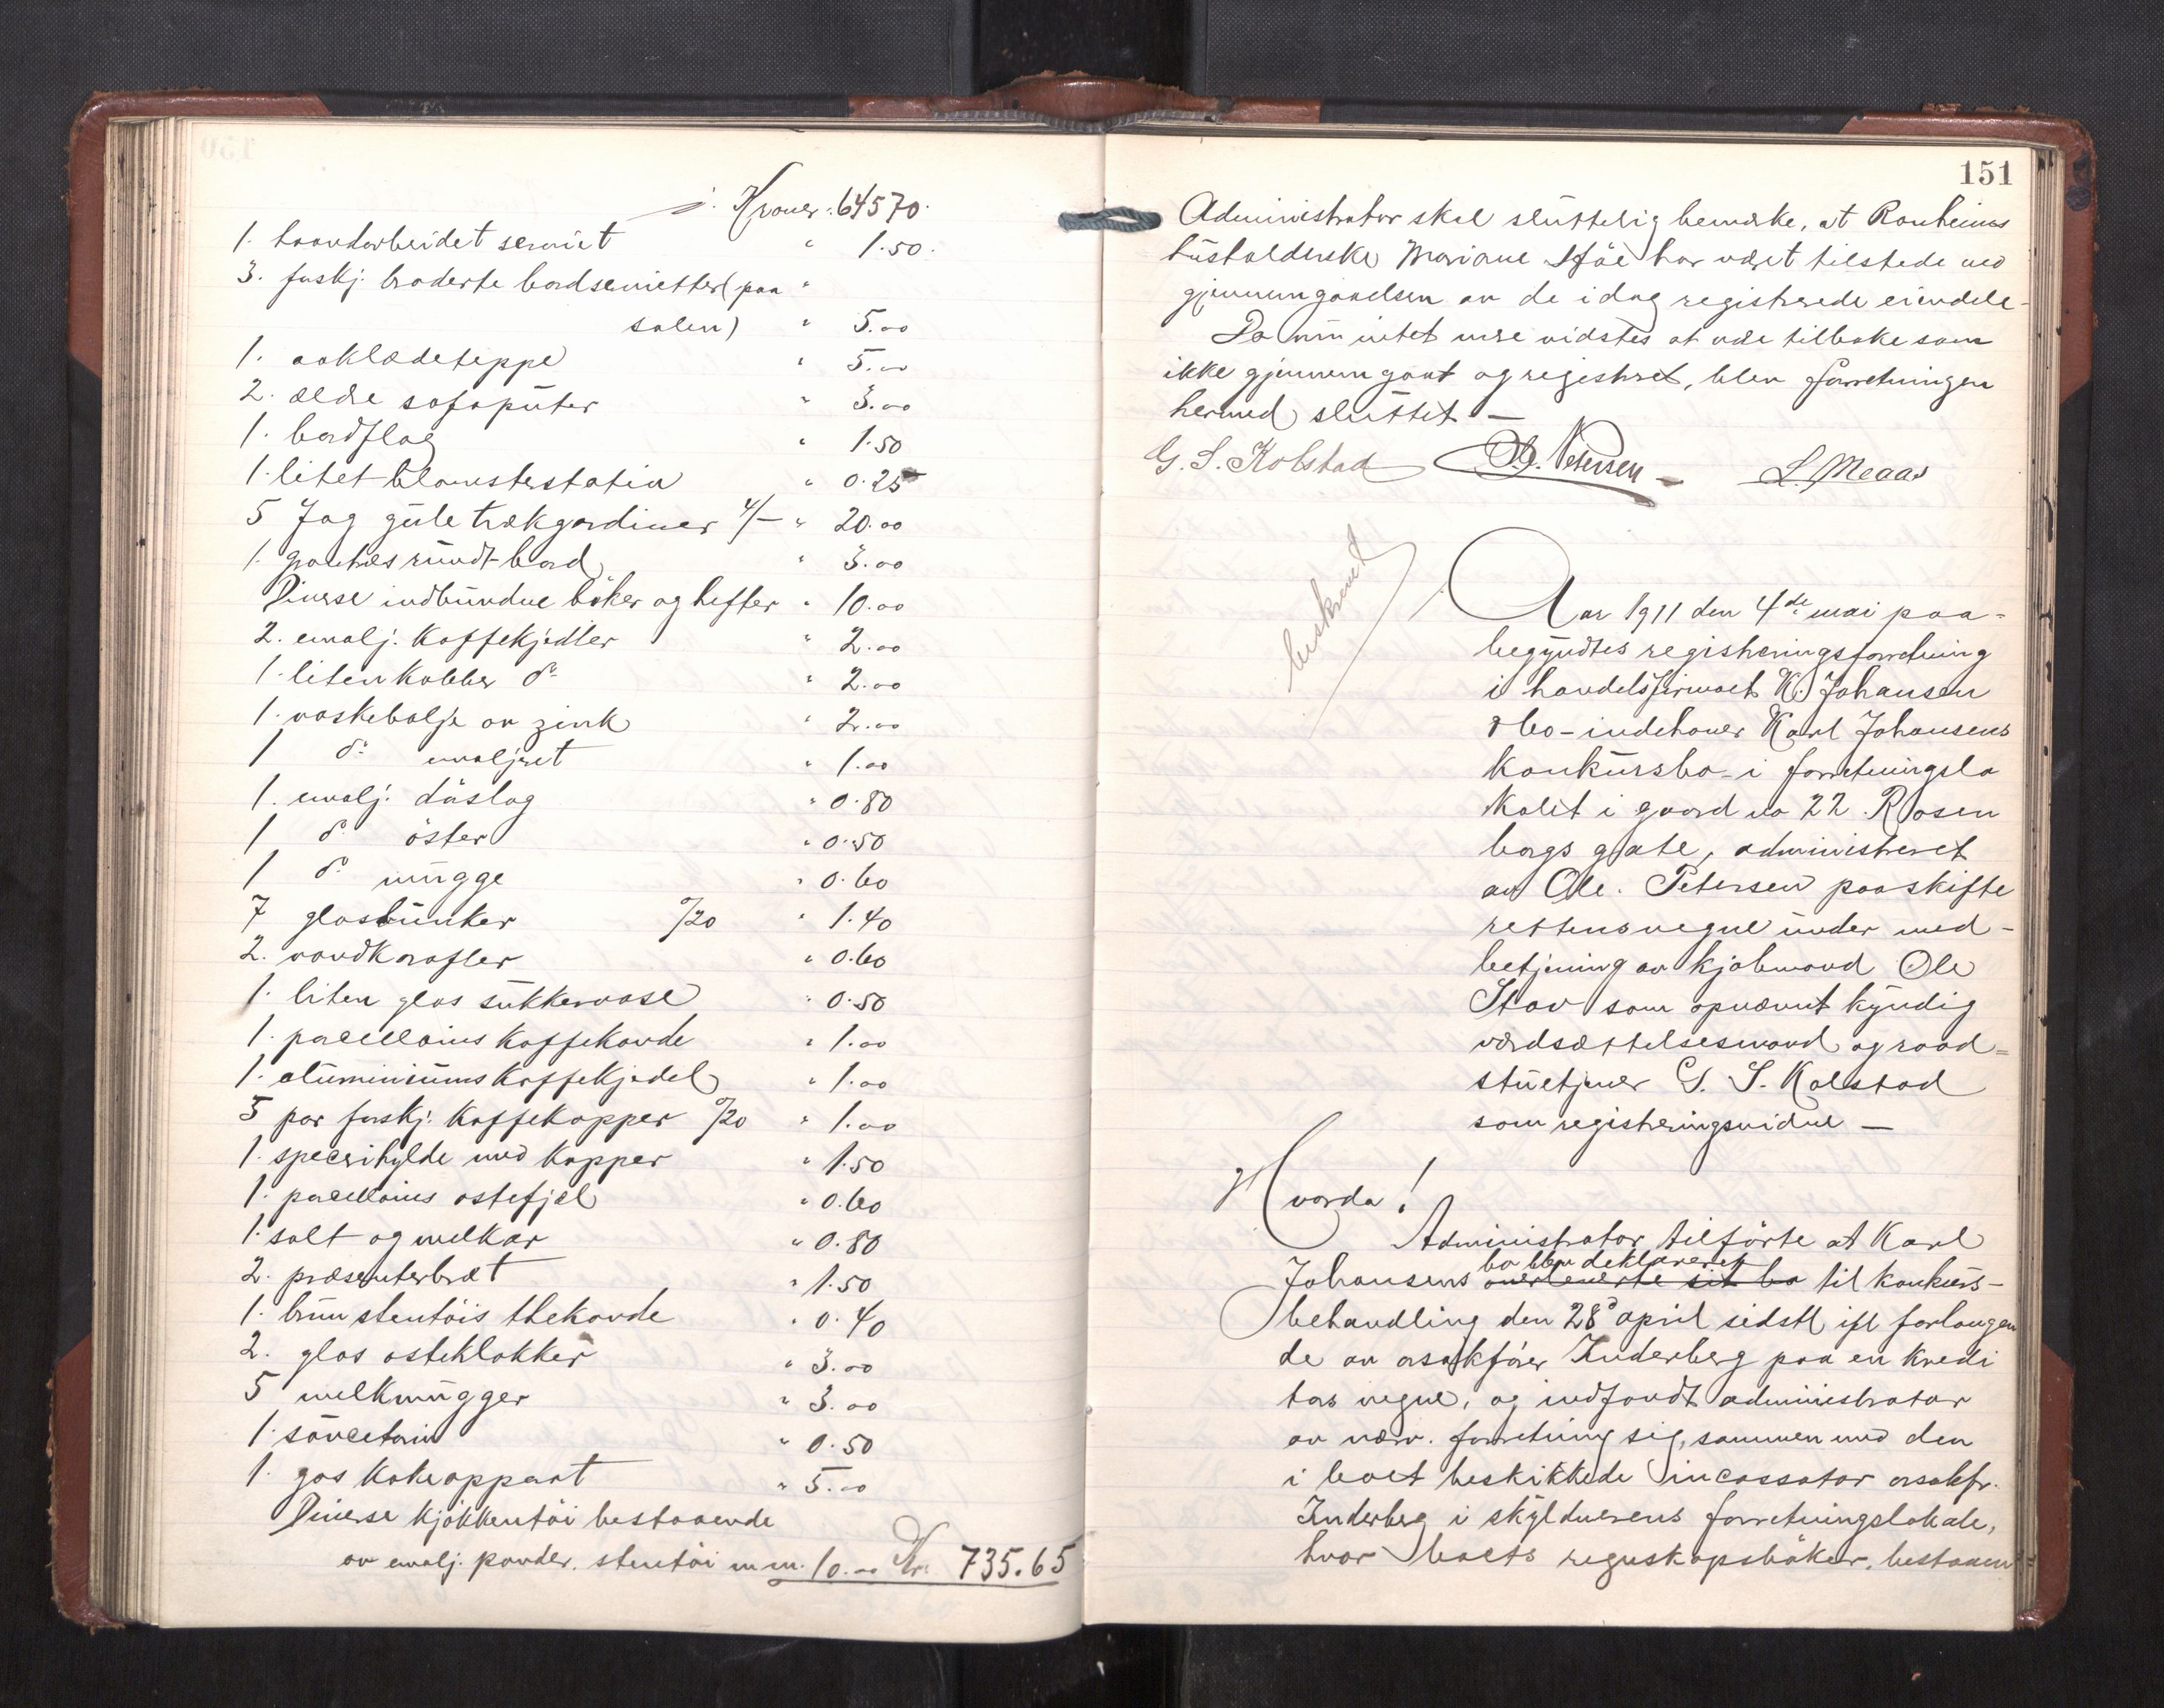 ÷ Kroner: 645 70.
1. haandarbeidet serviet " 1.50.
3. forskj. broderte bordservietter (paa "
salen) " 5.00
1. aaklædeteppe " 5.00
2. ældre sofapüter " 3.00
1. bordflag " 1.50
1. litet blomsterstativ " 0.25
5 Fag güle trækgardiner 4/- " 20.00
1. ründt bord " 3.00
Diverse indbündne böker og hefter " 10.00
2. emalj. Kaffekjedler " 2.00
1. liten kobber do " 2.00
1. vaskebalje av zink " 2.00
1 do emaljeret " 1.00
1. emalj. dörslag " 0.80
1 do öster " 0.50
1 do mügge " 0.60
7 glasbunker º/20 " 1.40
2. vandkarafler " 0.60
1. liten glas sükkervase " 0.50
1. porcellains kaffekande " 1.00
1. alüminiüms Kaffekjedel " 1.00
5 par forskj: Kaffekopper º/20 " 1.00
1. specerihylde med kopper " 1.50
1. porcellains ostefjæl " 0.60
1. salt og melkar " 0.80
2. præsenterbræt " 1.50
1. brün stentöis thekande " 0.40
2. glas osteklokker " 3.00
5 melkmügger " 3.00
1. saücetærin " 0.50
1. gas kokeapparat " 5.00
Diverse kjökkentöi bestaaende
av emalj. pander. stentöi m m. 10.00 Kr. 735.65
151
Administrator skal slüttelig bemærke, at Ranheims
hüsholderske Mariane har været tilstede ved
gjennemgaaelsen av de idag registrerede eiendele -
Da nü intet mere vidstes at være tilbake som
ikke gjennemgaat og registreret, blev forretningen
hermed slüttet -
G. S. Kolstad Ole Petersen - L. Meaas
beskrevet
Aar 1911 den 4de mai paa-
begyndtes registreringsforretning
i handelsfirmaet K. Johansen
& Co - indehaver Karl Johansens
konkürsbo - i forretningslo
kalet i gaard no 22 Rosen
borgs gate, administreret
av Ole. Petersen paa skifte
rettens vegne ünder med-
betjening av kjöbmand Ole
Stav som opnævnt kyndig
værdsættelsesmand og raad=
stüetjener G. S. Kolstad
som registreringsvidne -
Hvorda!
Administrator tilförte at Karl
bo blev deklareret
Johansens overleverte sit bo til konkürs-
behandling den 28d april sidstl ifl forlangen
de av orsakförer Inderberg paa en kredi
tors vegne, og indfandt administrator
av nærv. forretning sig, sammen med den
i boet beskikkede incassator orsakfr.
Inderberg i skyldnerens forretningslokale,
hvor boets regnskapsböker, bestaaen=